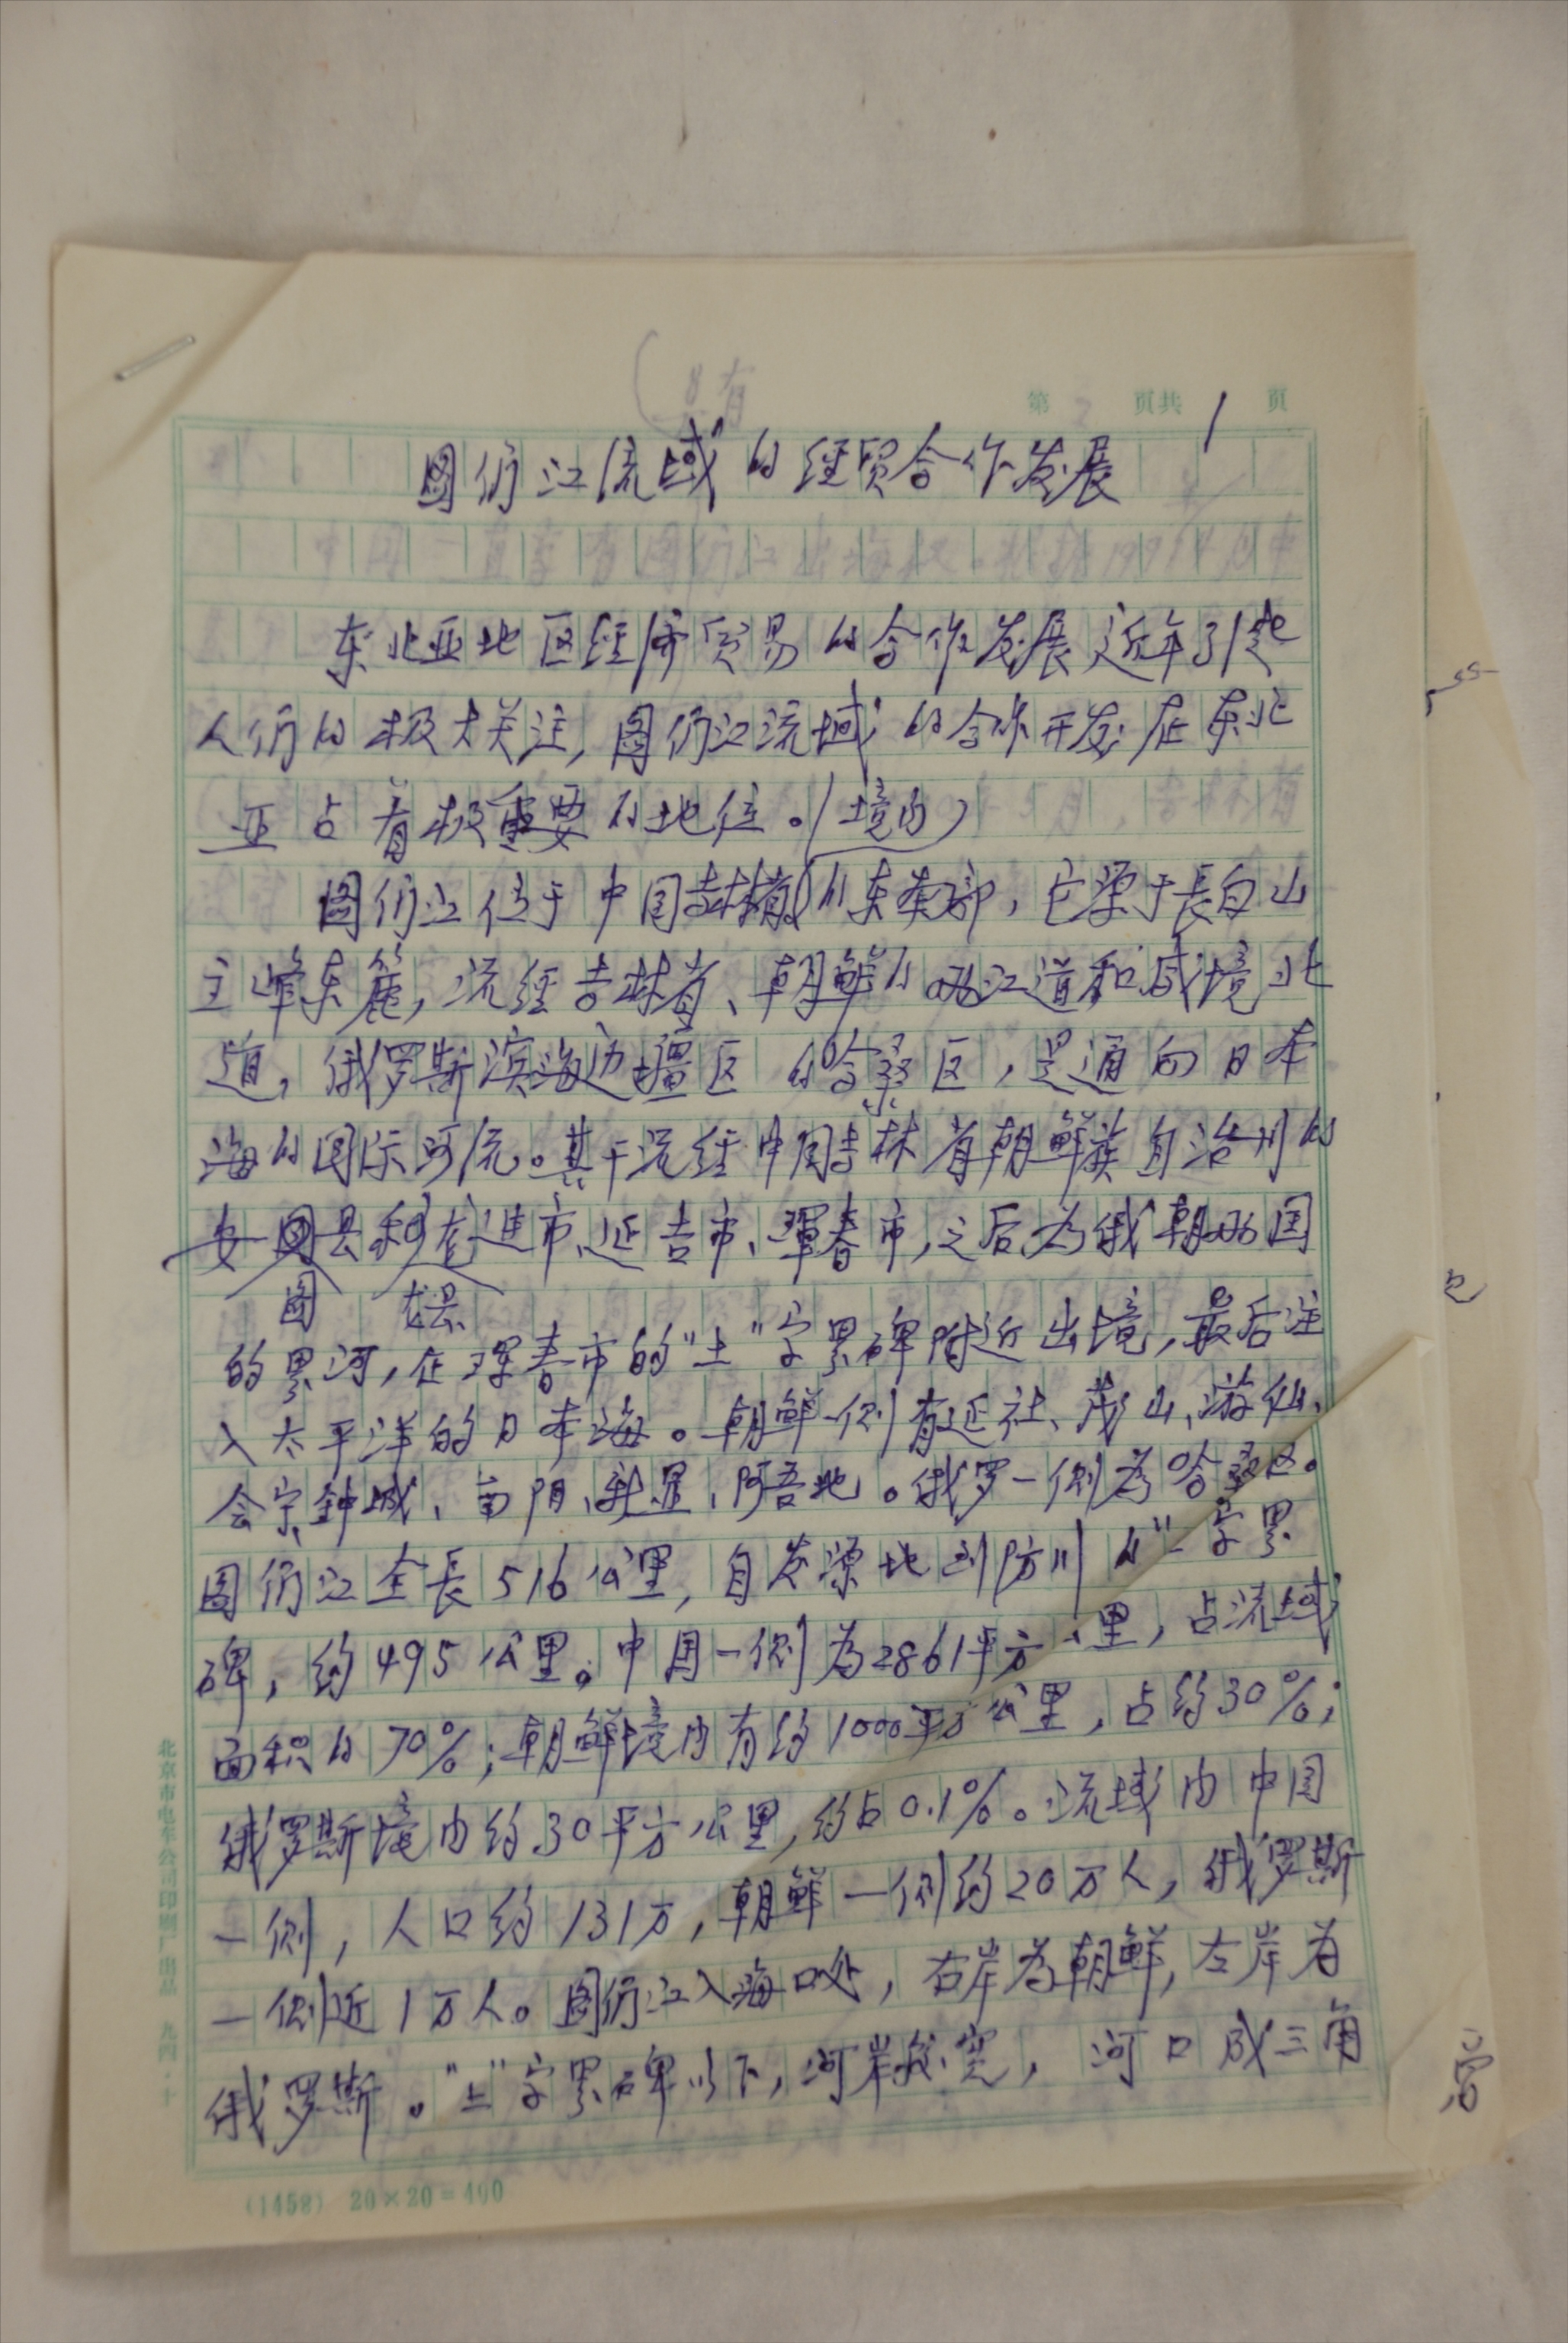 第 页共 1 页
图们江流域的经贸合作发展
东北亚地区经济贸易的合作发展近年引起
人们的极大关注,图们江流域的合作开发在东北
亚占着极重要的地位。(境内)
图们江位于中国吉林省的东南部,它源于長白山
主峰东麓,流经吉林省、朝鲜的两江道和咸境北
道,俄罗斯滨海边疆区的哈桑区,是通向日本
海的国际河流。其干流经中国吉林省朝鲜族自治州的
安图县和龙市、延吉市、珲春市,之后为俄朝两国
图 龙县
的界河,在珲春市的"土"字界碑附近出境,最后注
入太平洋的日本海。朝鲜一侧有延社、茂山、游仙、
会宁、钟城、南阳、新星、阿吾地。俄罗一侧为哈桑区。
图们江全長516公里,自发源地到防川的" 字界
碑,约495公里。中国一侧为2861平方 里,占流域
面积的70%;朝鲜境内有约1000平方公里,占约30%;
俄罗斯境内约30平方公里,约占0.1%。流域内中国
一侧,人口约131万,朝鲜一侧约20万人,俄罗斯
一侧近1万人。图们江入海口处,右岸为朝鲜,左岸为
俄罗斯。"土"字界碑以下,河岸我宽,河口成三角
(1458) 20×20=400
北京市电车公司印刷厂出品 九四·十